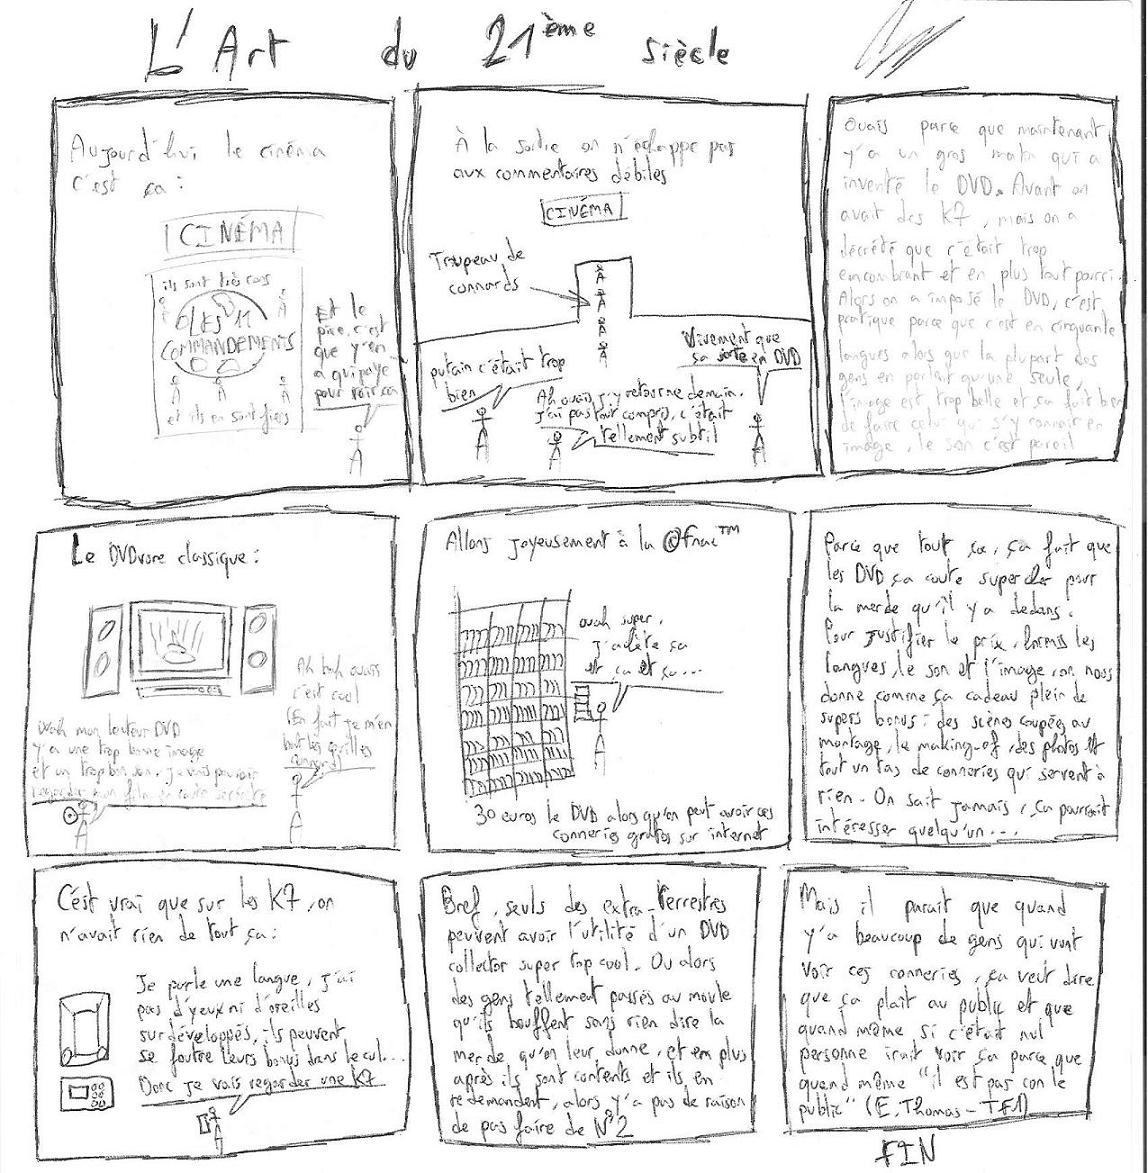 L'Art du 21ème siècle
Aujourd'hui le cinéma
c'est ça :
CINÉMA
ils sont très cons
LES 11
COMMANDEMENTS
et ils en sont fiers
Et le
pire, c'est
que y'en
a qui paye
pour voir ça
À la sortie on n'échappe pas
aux commentaires débiles
CINÉMA
Troupeau de
connards
putain c'était trop
bien
Ah ouais, j'y retourne demain.
J'ai pas tout compris, c'était
tellement subtil
Vivement que
ça sorte en DVD
Ouais parce que maintenant,
y'a un gros malin qui a
inventé le DVD. Avant on
avait des K7, mais on a
décrété que c'était trop
encombrant et en plus tout pourri.
Alors on a imposé le DVD, c'est
pratique parce que c'est en cinquante
langues alors que la plupart des
gens en parlait qu'une seule,
l'image est trop belle et ça fait bien
de faire celui qui s'y connait en
image, le son c'est pareil
Le DVDvore classique :
Ouah mon lecteur DVD
y'a une trop bonne image
et un trop bon son, je vais pouvoir
regarder mon film en toute
Ah bah ouais
c'est cool
(En fait je m'en
bat les couilles
connard)
Allons joyeusement à la ©fnac™
ouah super,
j'achète ça
et ça et ça...
30 euros le DVD alors qu'on peut avoir ces
conneries gratos sur internet
Parce que tout ça, ça fait que
les DVD ça coute super cher pour
la merde qu'il y a dedans.
Pour justifier le prix, hormis les
langues, le son et l'image, on nous
donne comme ça cadeau plein de
supers bonus : des scènes coupées au
montage, le making-of, des photos et
tout un tas de conneries qui servent à
rien. On sait jamais, ça pourrait
intéresser quelqu'un...
C'est vrai que sur les K7, on
n'avait rien de tout ça :
Je parle une langue, j'ai
pas d'yeux ni d'oreilles
surdéveloppés, ils peuvent
se foutre leurs bonus dans le cul...
Donc je vais regarder une K7
Bref, seuls des extra-terrestres
peuvent avoir l'utilité d'un DVD
collector super top cool. Ou alors
des gens tellement passés au moule
qu'ils bouffent sans rien dire la
merde qu'on leur donne, et en plus
après ils sont contents et ils en
redemandent, alors y'a pas de raison
de pas faire de N°2
Mais il parait que quand
y'a beaucoup de gens qui vont
voir ces conneries, ça veut dire
que ça plait au public et que
quand même si c'était nul
personne irait voir ça parce que
quand même "il est pas con le
public" (E. Thomas - TF1)
FIN